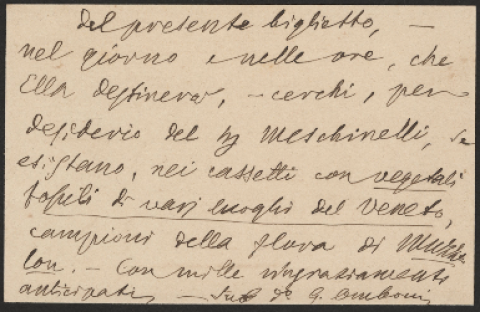 del presente biglietto, —
nel giorno e nelle ore, che
Ella destinerà, — cerchi, per
desiderio del Meschinelli, se
esistano, nei cassetti con vegetali
fossili di varj luoghi del Veneto,
campioni della flora di
— Con mille ringraziamenti
anticipati — G. Omboni